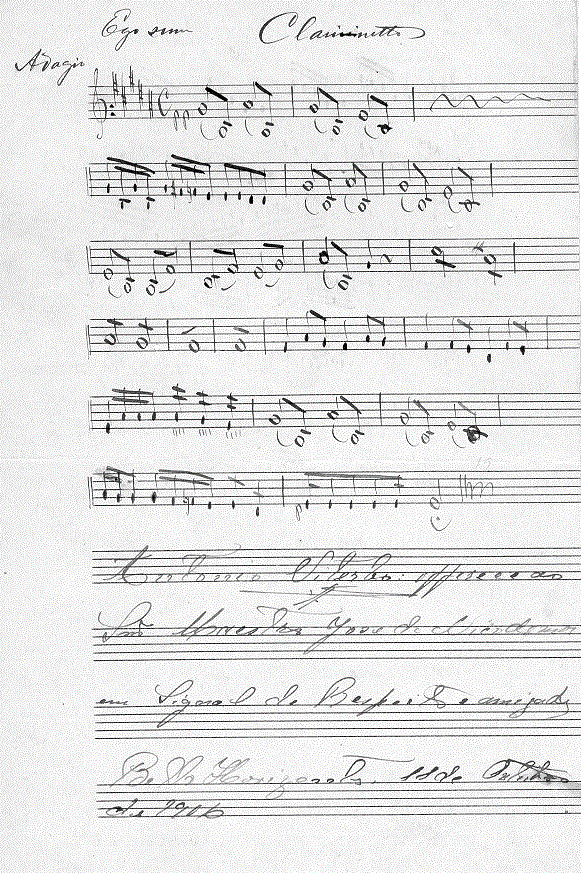 Ego sum Clarinetto
Adagio
pp
p
Antonio Viterbo: offerece ao
Snr. Maestro Jose de
em Signal de Respeito e amizade
Bello Horizonte, 11 de
de 1906